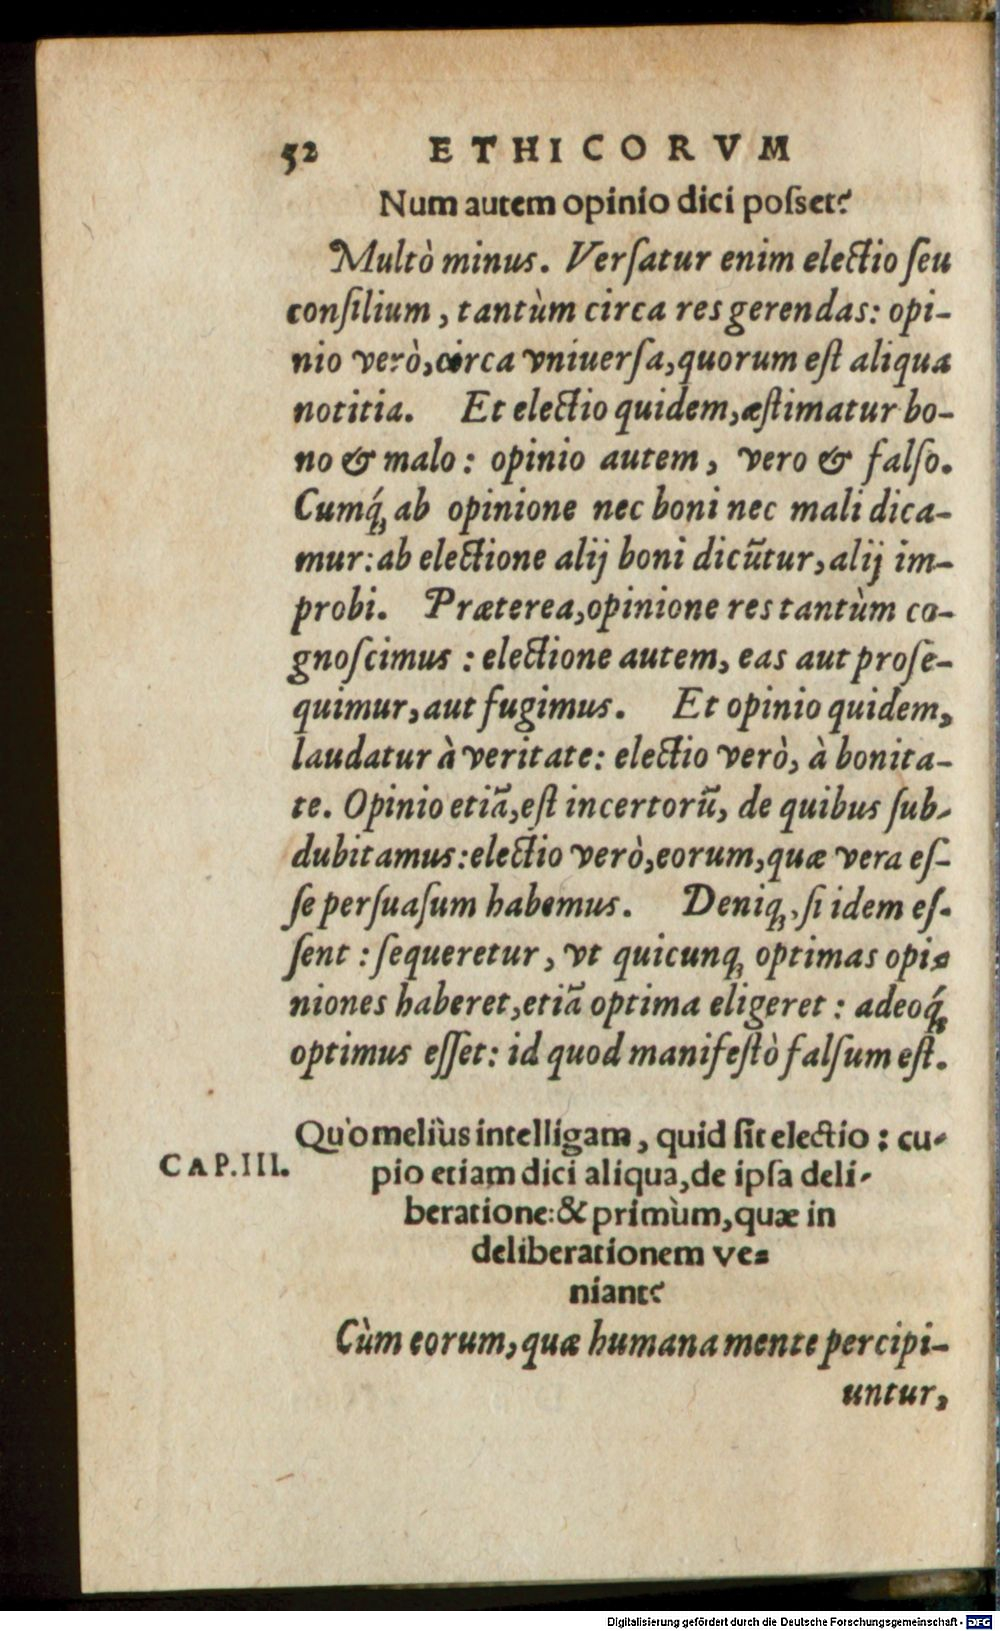 52 ETHICORVM
Num autem opinio dici posset?
Multò minus. Versatur enim electio seu
consilium, tantùm circa res gerendas: opi-
nio verò, circa vniuersa, quorum est aliqua
notitia. Et electio quidem, æstimatur bo-
no & malo: opinio autem, vero & falso.
Cumq́ꝫ ab opinione nec boni nec mali dica-
mur: ab electione alij boni dicũtur, alij im-
probi. Præterea, opinione res tantùm co-
gnoscimus: electione autem, eas aut prose-
quimur, aut fugimus. Et opinio quidem,
laudatur à veritate: electio verò, à bonita-
te. Opinio etiã, est incertorũ, de quibus sub-
dubitamus: electio verò, eorum, quæ vera es-
se persuasum habemus. Deniqꝫ, si idem es-
sent: sequeretur, vt quicunqꝫ optimas opi-
niones haberet, etiã optima eligeret: adeoq́ꝫ
optimus esset: id quod manifestò falsum est.
Quò meliùs intelligam, quid sit electio: cu-
CAP.III. pio etiam dici aliqua, de ipsa deli-
beratione: & primùm, quæ in
deliberationem ve-
niant?
Cùm eorum, quæ humana mente percipi-
untur,
Digitalisierung gefördert durch die Deutsche Forschungsgemeinschaft - DFG